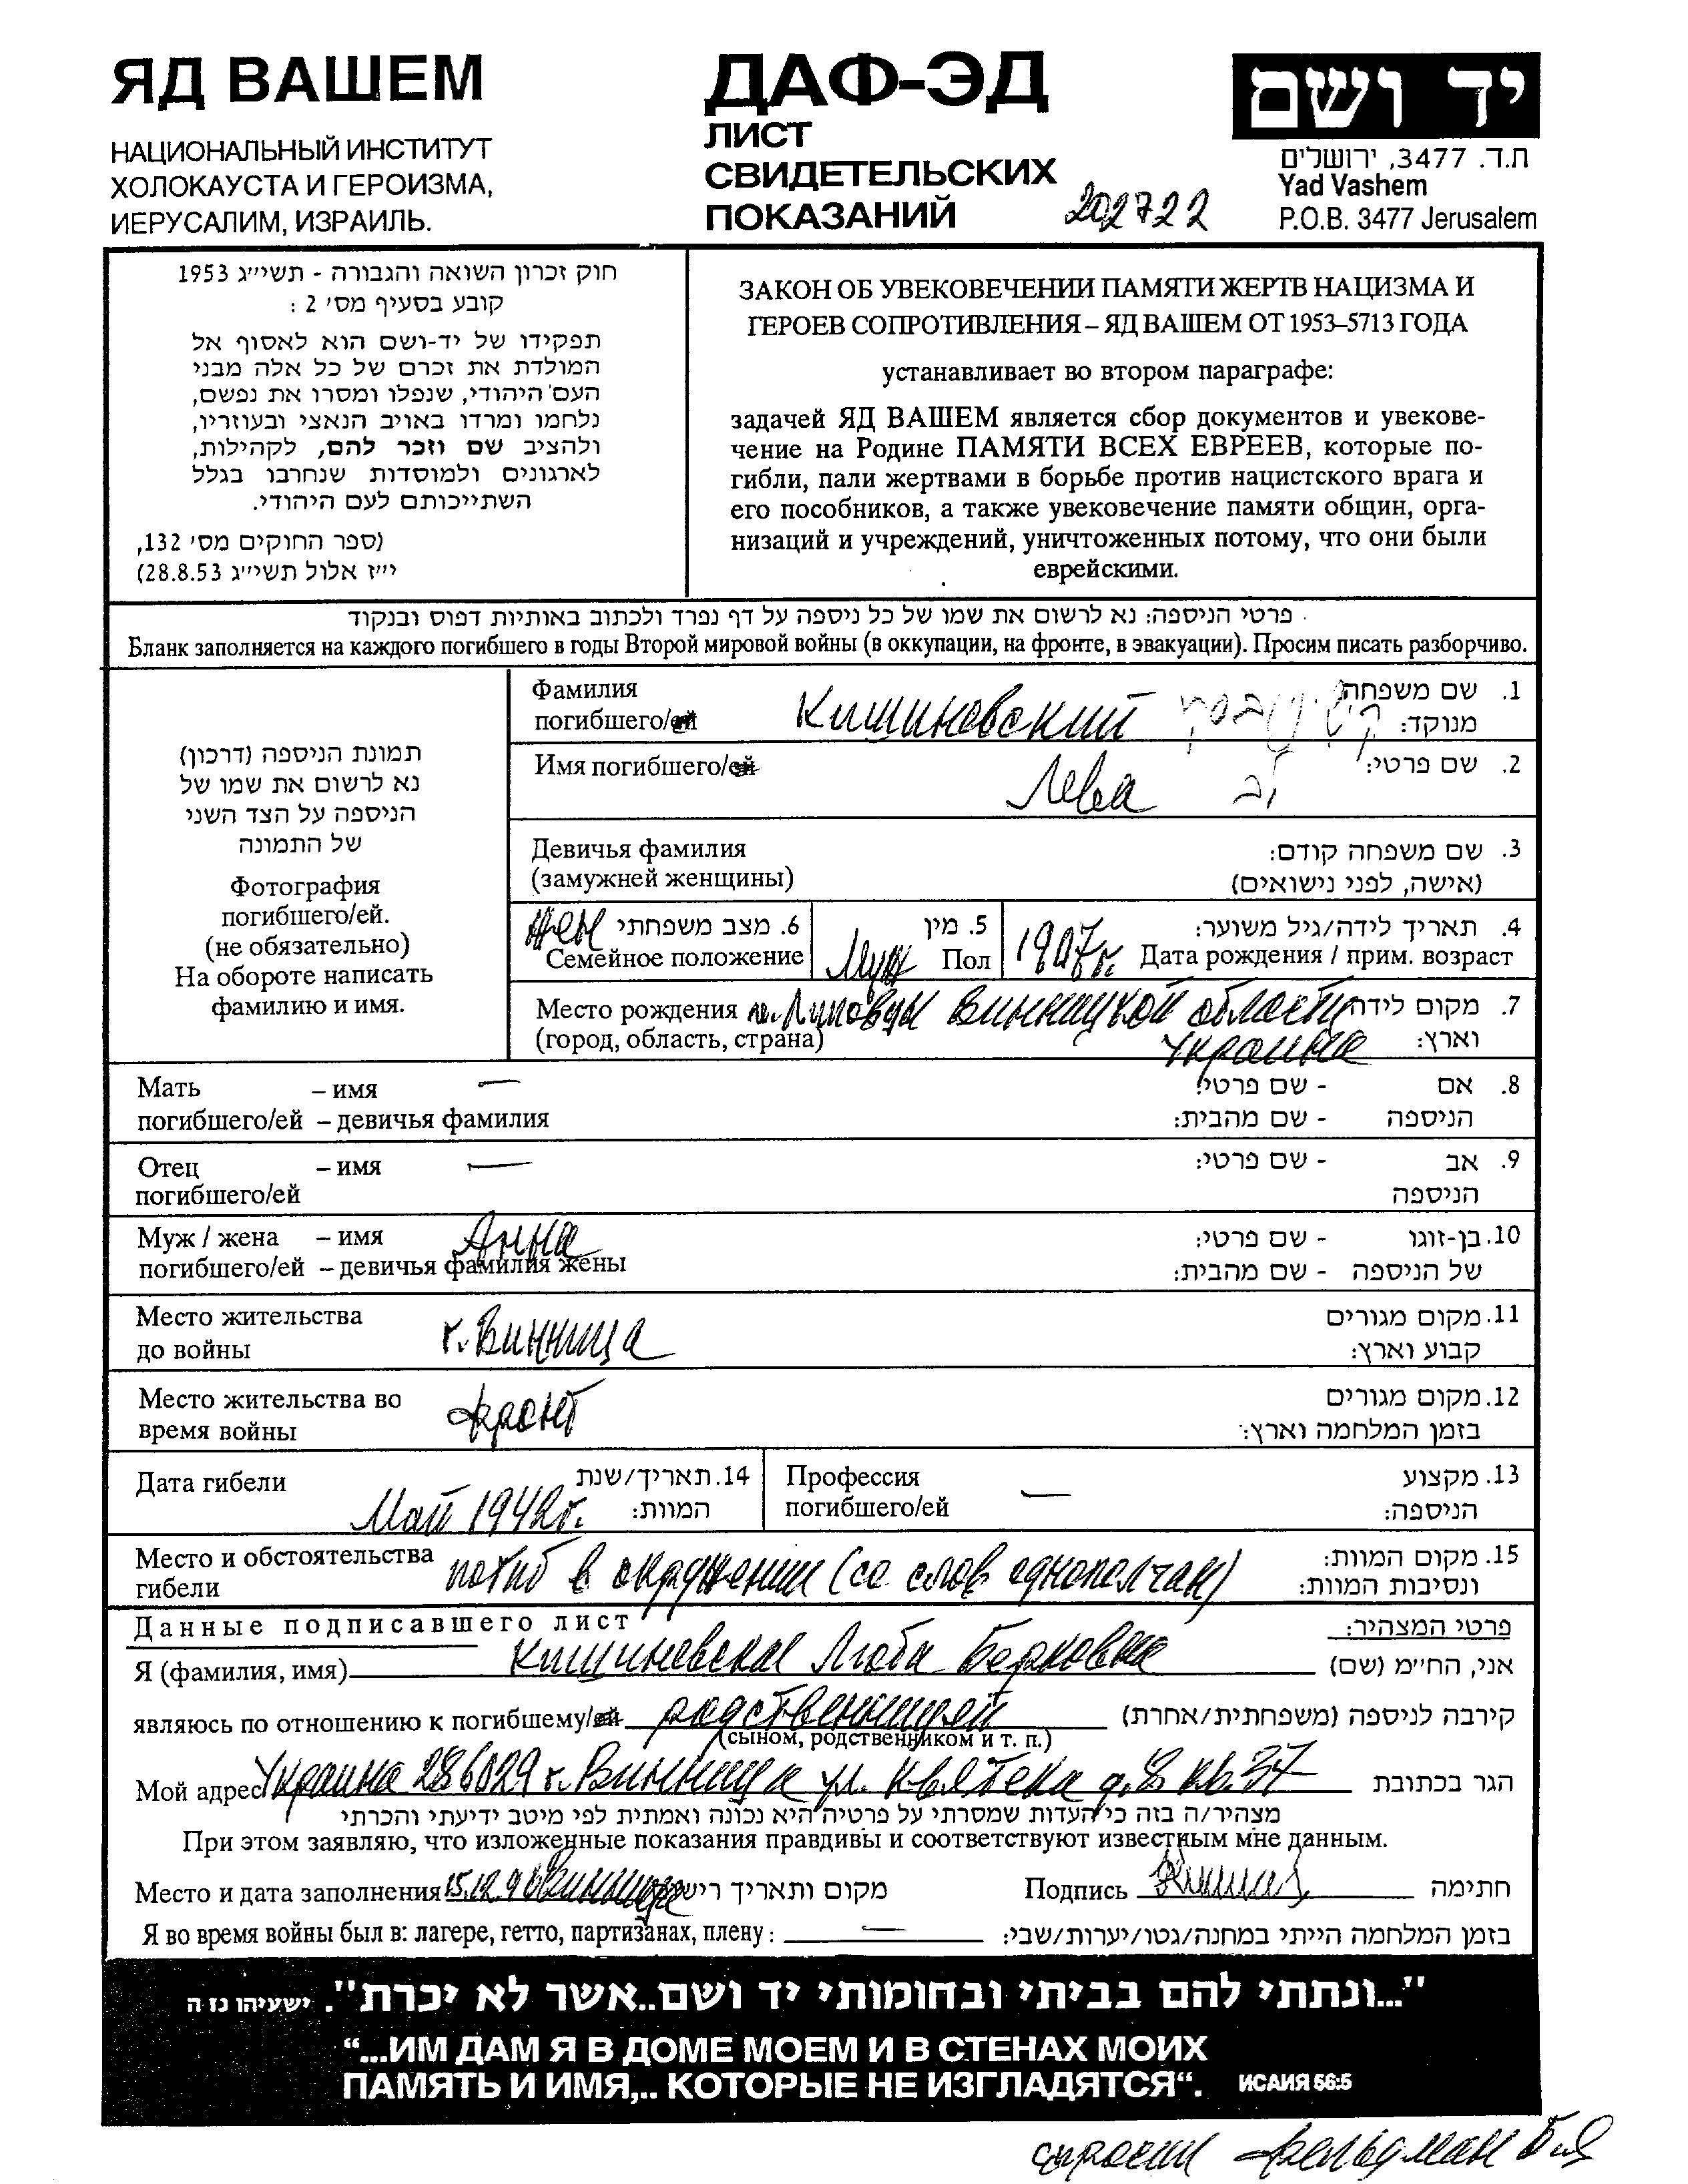 ЯД ВАШЕМ
НАЦИОНАЛЬНЫЙ ИНСТИТУТ
ХОЛОКАУСТА И ГЕРОИЗМА,
ИЕРУСАЛИМ, ИЗРАИЛЬ.
ДАФ-ЭД
ЛИСТ
СВИДЕТЕЛЬСКИХ
ПОКАЗАНИЙ
202722
יד ושם
ת.ד. 3477, ירושלים
Yad Vashem
P.O.B. 3477 Jerusalem
חוק זכרון השואה והגבורה - תשי״ג 1953
קובע בסעיף מס׳ 2 :
תפקידו של יד-ושם הוא לאסוף אל
המולדת את זכרם של כל אלה מבני
העם היהודי, שנפלו ומסרו את נפשם,
נלחמו ומרדו באויב הנאצי ובעוזריו,
ולהציב שם וזכר להם, לקהילות,
לארגונים ולמוסדות שנחרבו בגלל
השתייכותם לעם היהודי.
(ספר החוקים מס׳ 132,
י״ז אלול תשי״ג 28.8.53)
ЗАКОН ОБ УВЕКОВЕЧЕНИИ ПАМЯТИ ЖЕРТВ НАЦИЗМА И
ГЕРОЕВ СОПРОТИВЛЕНИЯ – ЯД ВАШЕМ ОТ 1953–5713 ГОДА
устанавливает во втором параграфе:
задачей ЯД ВАШЕМ является сбор документов и увекове-
чение на Родине ПАМЯТИ ВСЕХ ЕВРЕЕВ, которые по-
гибли, пали жертвами в борьбе против нацистского врага и
его пособников, а также увековечение памяти общин, орга-
низаций и учреждений, уничтоженных потому, что они были
еврейскими.
פרטי הניספה: נא לרשום את שמו של כל ניספה על דף נפרד ולכתוב באותיות דפוס ובנקוד
Бланк заполняется на каждого погибшего в годы Второй мировой войны (в оккупации, на фронте, в эвакуации). Просим писать разборчиво.
תמונת הניספה (דרכון)
נא לרשום את שמו של
הניספה על הצד השני
של התמונה
Фотография
погибшего/ей.
(не обязательно)
На обороте написать
фамилию и имя.
Фамилия
погибшего/ей Кишиневский קישינובסקי
1. שם משפחה
מנוקד:
Имя погибшего/ей Лева לב 2. שם פרטי:
Девичья фамилия
(замужней женщины)
3. שם משפחה קודם:
(אישה, לפני נישואים)
жен 6. מצב משפחתי
Семейное положение
5. מין
Муж Пол
4. תאריך לידה/גיל משוער:
1907г. Дата рождения / прим. возраст
Место рождения м. Луковцы Винницкой области 7. מקום לידה
(город, область, страна) Украина וארץ:
Мать – имя — 8. אם - שם פרטי:
погибшего/ей – девичья фамилия הניספה - שם מהבית:
Отец – имя — 9. אב - שם פרטי:
погибшего/ей הניספה
Муж / жена – имя Анна 10. בן-זוגו - שם פרטי:
погибшего/ей – девичья фамилия жены של הניספה - שם מהבית:
Место жительства 11. מקום מגורים
до войны г. Винница קבוע וארץ:
Место жительства во 12. מקום מגורים
время войны фронт בזמן המלחמה וארץ:
Дата гибели 14. תאריך/שנת
Май 1942г. המוות:
Профессия 13. מקצוע
погибшего/ей — הניספה:
Место и обстоятельства погиб в окружении (со слов однополчан) 15. מקום המוות:
гибели ונסיבות המוות:
Данные подписавшего лист פרטי המצהיר:
Я (фамилия, имя) Кишиневская Люба Берковна אני, הח״מ (שם)
являюсь по отношению к погибшему/ей родственницей קירבה לניספה (משפחתית/אחרת)
(сыном, родственником и т. п.)
Мой адрес Украина 286029 г. Винница ул. Квятека д.8 кв.37 הגר בכתובת
מצהיר/ה בזה כי העדות שמסרתי על פרטיה היא נכונה ואמתית לפי מיטב ידיעתי והכרתי
При этом заявляю, что изложенные показания правдивы и соответствуют известным мне данным.
Место и дата заполнения 15.12.96 Винница מקום ותאריך Подпись חתימה
Я во время войны был в: лагере, гетто, партизанах, плену : — בזמן המלחמה הייתי במחנה/גטו/יערות/שבי:
"...ונתתי להם בביתי ובחומותי יד ושם..אשר לא יכרת". ישעיהו נו ה
“...ИМ ДАМ Я В ДОМЕ МОЕМ И В СТЕНАХ МОИХ
ПАМЯТЬ И ИМЯ,.. КОТОРЫЕ НЕ ИЗГЛАДЯТСЯ“. ИСАИЯ 56:5
Фельдман